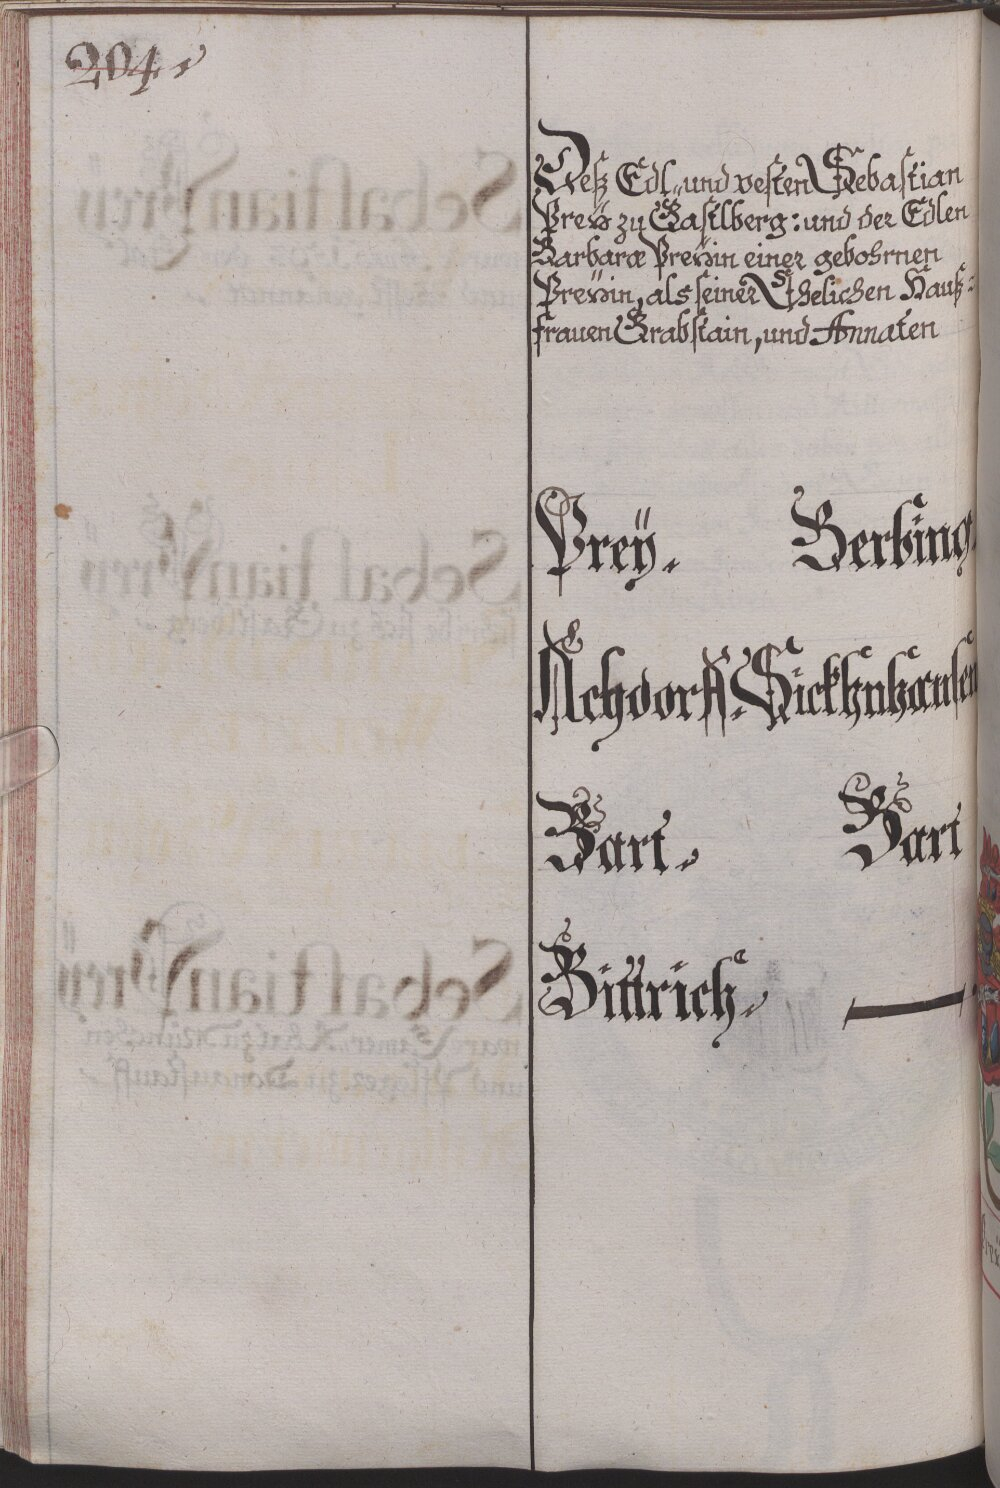 204.
Deß Edl„ und vesten Sebastian
Preÿ zu Gastlberg: und der Edlen
Barbaræ Preÿin einer gebohrnen
Preÿin, als seiner Ehelichen Hauß=
frauen Grabstain, und Annaten
Preÿ. Berbing.
Achdorff. Sickhnhausen
Bart. Bart
Bittrich. —